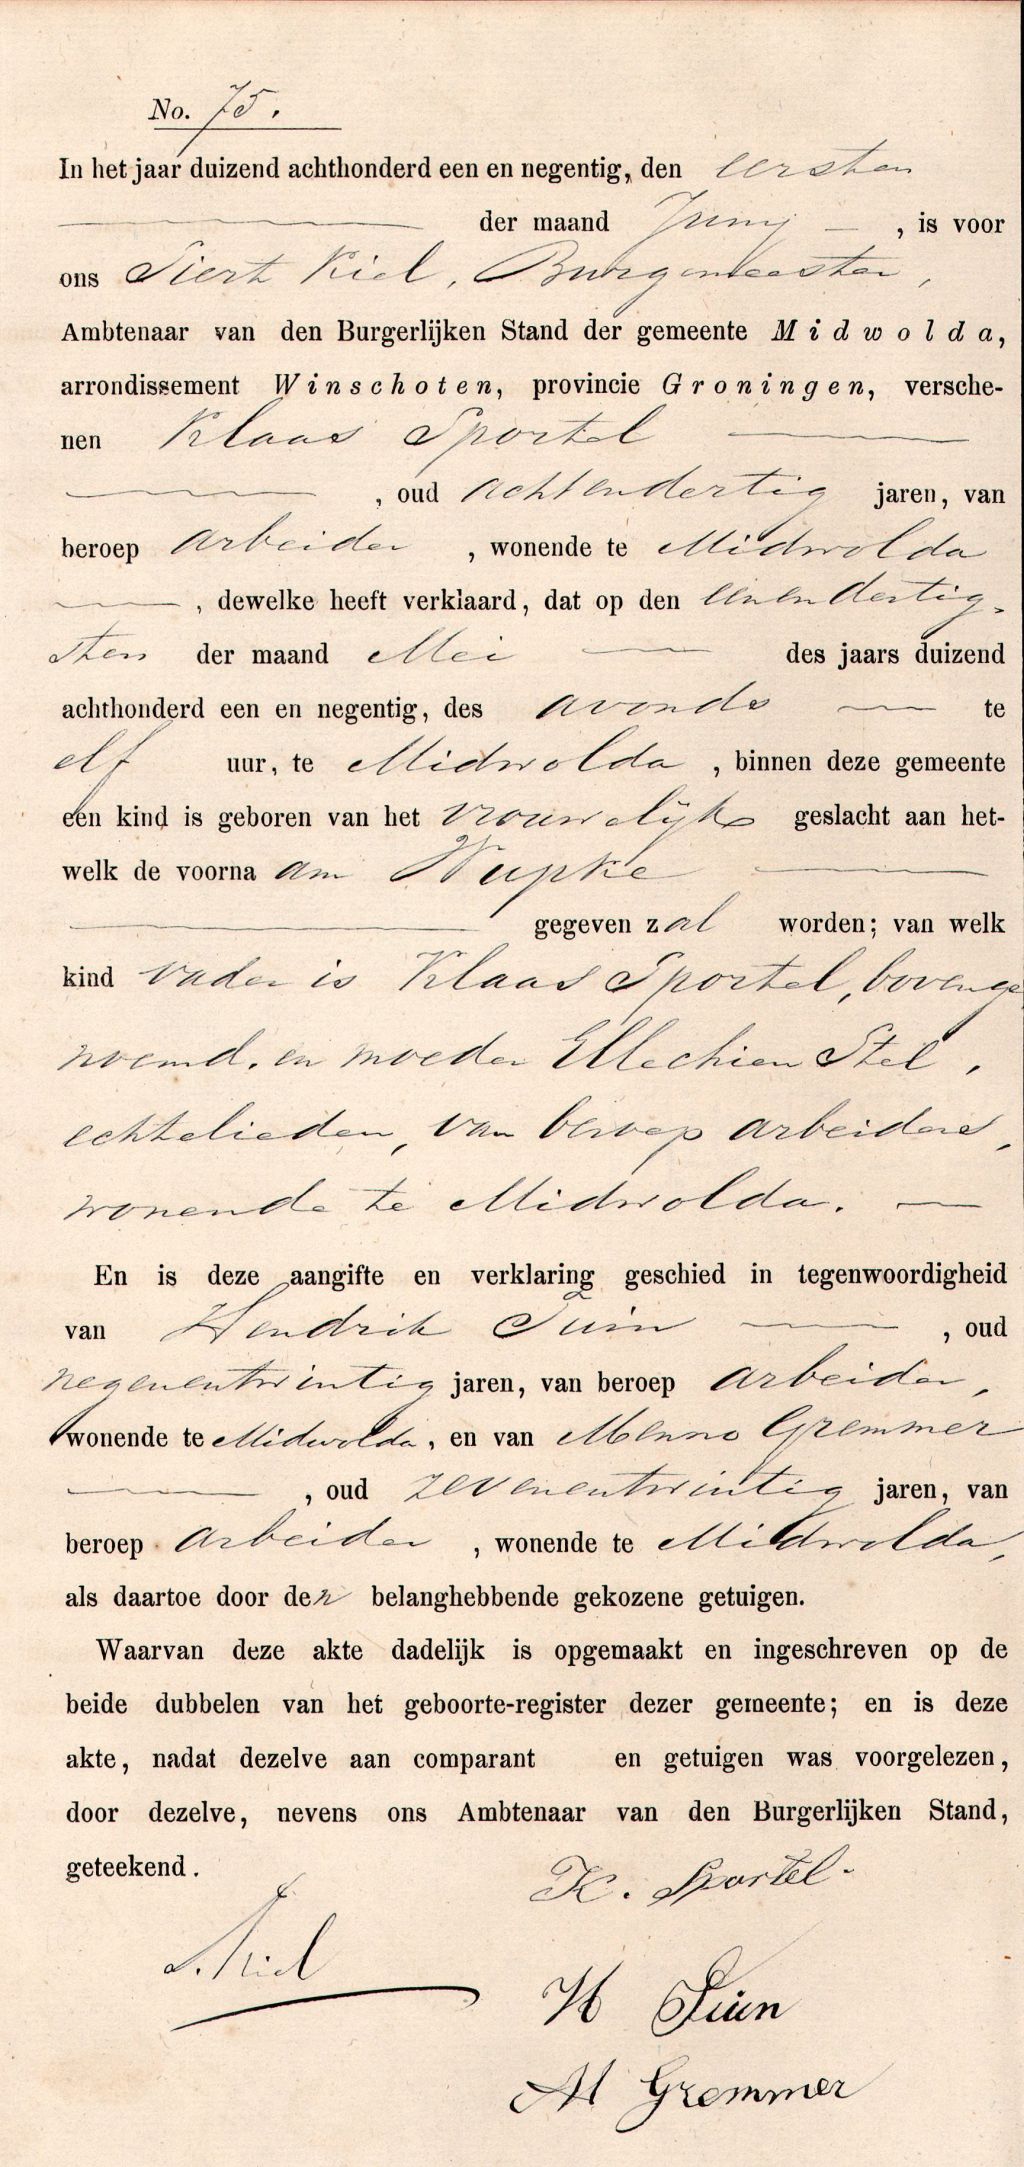 No. 75.
In het jaar duizend achthonderd een en negentig, den eersten
der maand Junij, is voor
ons Siert Kiel, Burgemeester,
Ambtenaar van den Burgerlijken Stand der gemeente Midwolda,
arrondissement Winschoten, provincie Groningen, versche-
nen Klaas Sportel
, oud achtendertig jaren, van
beroep arbeider, wonende te Midwolda
, dewelke heeft verklaard, dat op den eenendertig-
sten der maand Mei des jaars duizend
achthonderd een en negentig, des avonds te
elf uur, te Midwolda, binnen deze gemeente
een kind is geboren van het vrouwelijk geslacht aan het-
welk de voornaam Wupke
gegeven zal worden; van welk
kind vader is Klaas Sportel, bovenge
noemd, en moeder Ellechien Stel,
echtelieden, van beroep arbeiders,
wonende te Midwolda.
En is deze aangifte en verklaring geschied in tegenwoordigheid
van Hendrik Tuin, oud
negenentwintig jaren, van beroep arbeider,
wonende te Midwolda, en van Menno Gremmer
, oud zevenentwintig jaren, van
beroep arbeider, wonende te Midwolda,
als daartoe door den belanghebbende gekozene getuigen.
Waarvan deze akte dadelijk is opgemaakt en ingeschreven op de
beide dubbelen van het geboorte-register dezer gemeente; en is deze
akte, nadat dezelve aan comparant en getuigen was voorgelezen,
door dezelve, nevens ons Ambtenaar van den Burgerlijken Stand,
geteekend.
K. Sportel.
S. Kiel
H Tuin
M Gremmer